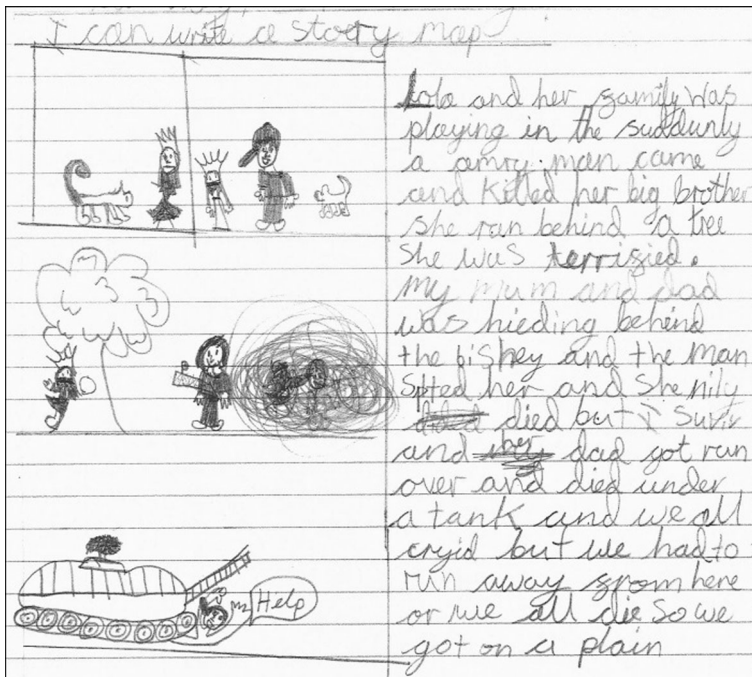 I can write a story map
Lola and her family was
playing in the suddunly
a amry man came
and killed her big brother
she ran behind a tree
she was terrified.
my mum and dad
was hieding behind
the bishey and the man
spted her and she nily
died but I Surviv
and her dad got run
over and died under
a tank and we all
cryid but we had to
run away from here
or we all die So we
got on a plain
Help